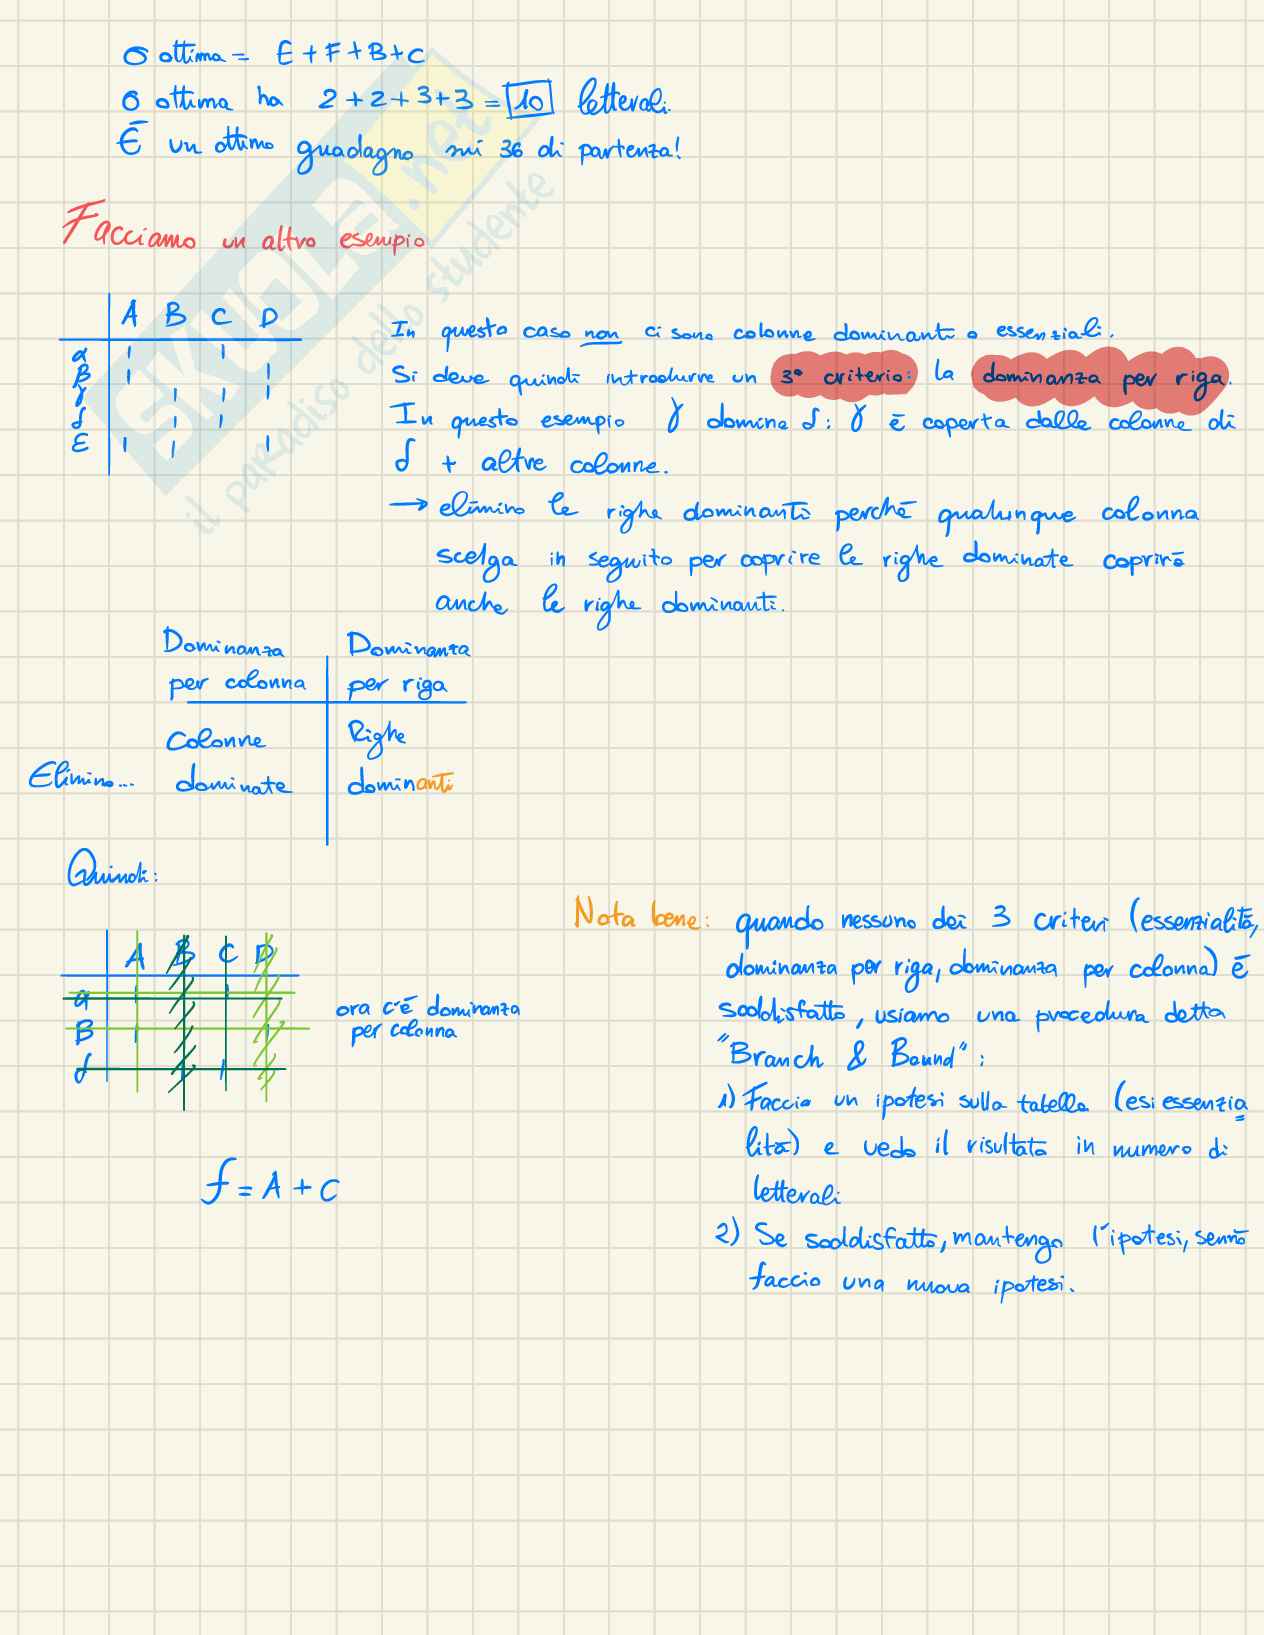 σ ottima = E + F + B + C
σ ottima ha 2 + 2 + 3 + 3 = 10 letterali.
È un ottimo guadagno sui 36 di partenza!
Facciamo un altro esempio
A B C D
α 1 1
β 1 1
γ 1 1 1
δ 1 1
ε 1 1 1
In questo caso non ci sono colonne dominanti o essenziali.
Si deve quindi introdurre un 3° criterio: la dominanza per riga.
In questo esempio γ domina δ: γ è coperta dalle colonne di
δ + altre colonne.
→ elimino le righe dominanti perché qualunque colonna
scelga in seguito per coprire le righe dominate coprirà
anche le righe dominanti.
Dominanza Dominanza
per colonna per riga
Colonne Righe
Elimino... dominate dominanti
Quindi:
A B C D
α 1 1
β 1 1
δ 1 1
ora c'è dominanza
per colonna
f = A + C
Nota bene: quando nessuno dei 3 criteri (essenzialità,
dominanza per riga, dominanza per colonna) è
soddisfatto, usiamo una procedura detta
"Branch & Bound":
1) Faccio un ipotesi sulla tabella (es: essenzia
lità) e vedo il risultato in numero di
letterali
2) Se soddisfatto, mantengo l'ipotesi, sennò
faccio una nuova ipotesi.
SKUOLA.net
il paradiso dello studente